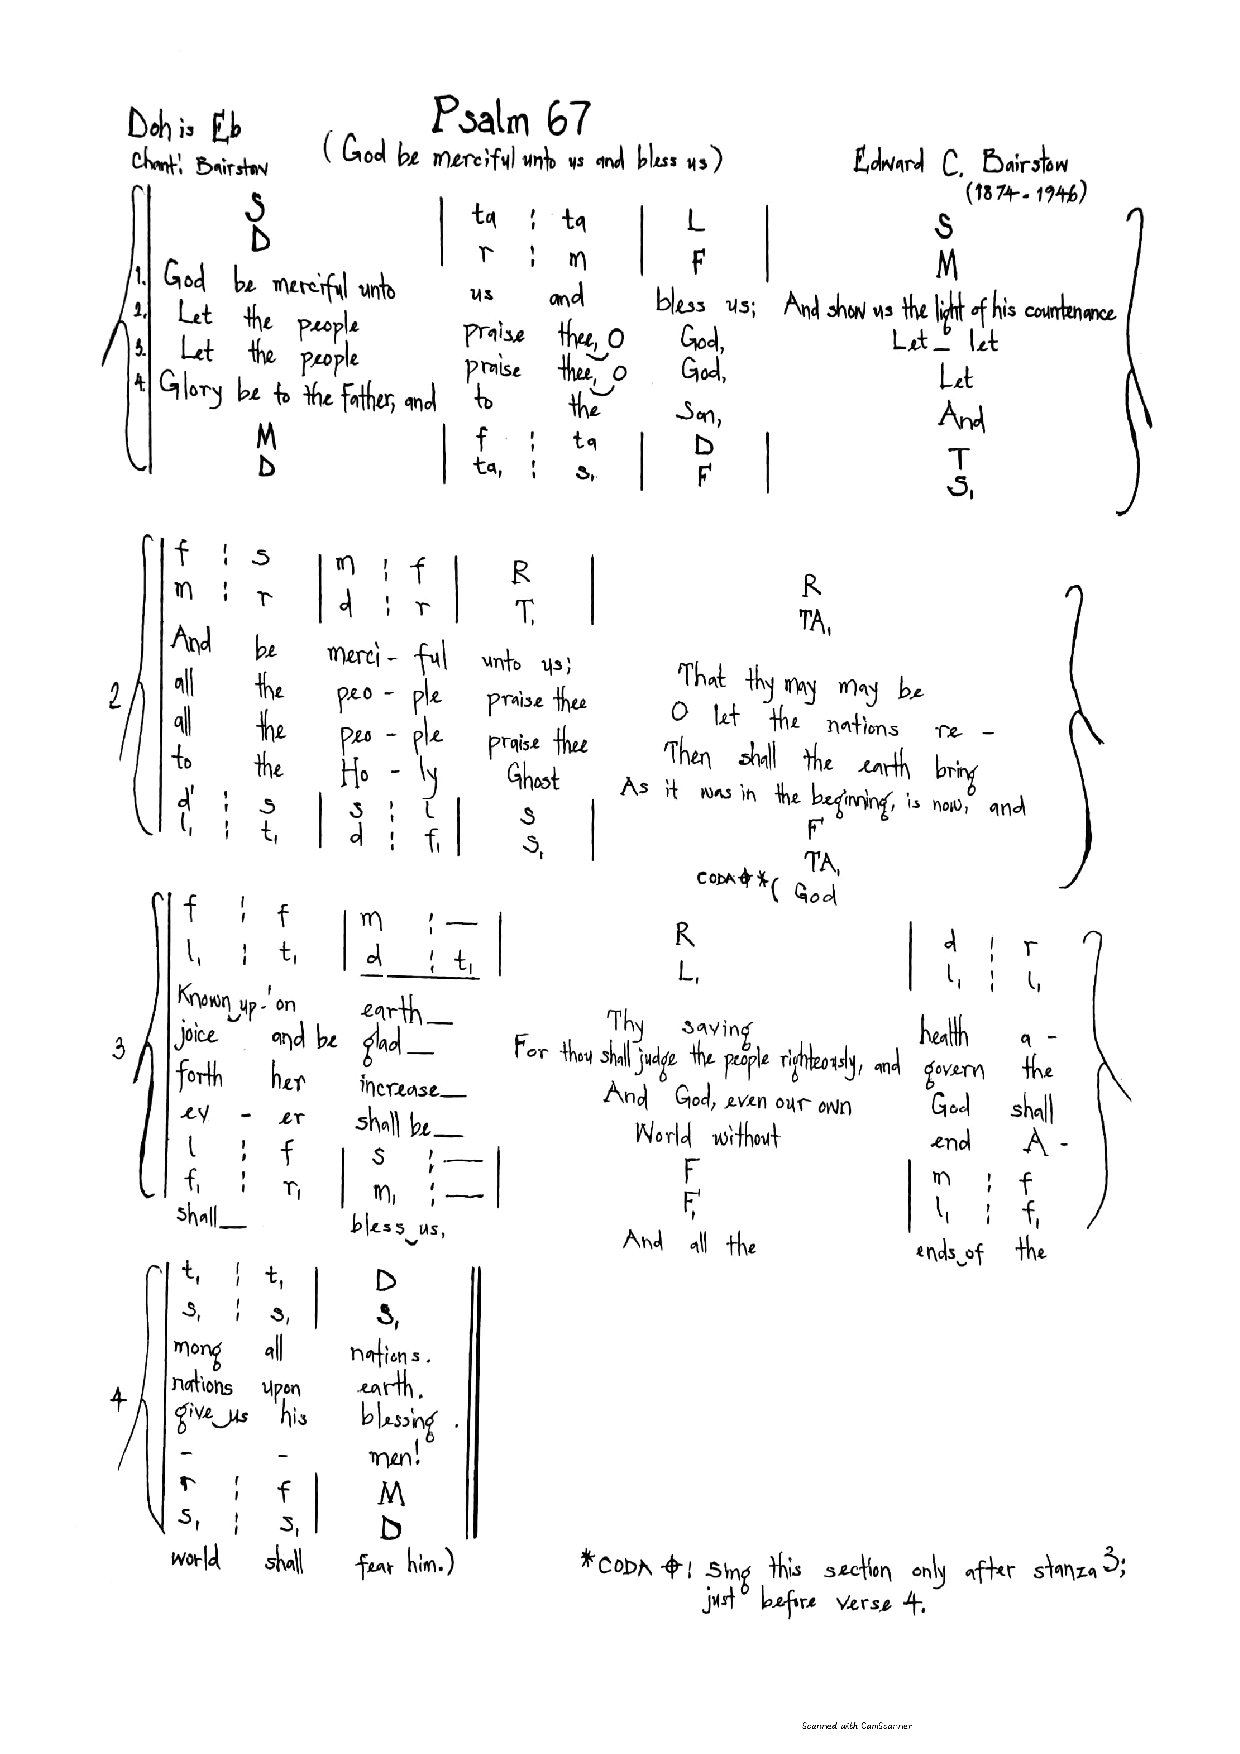 Psalm 67
Doh is Eb
(God be merciful unto us and bless us)
Chant: Bairstow
Edward C. Bairstow
(1874-1946)
S | ta : ta | L | S
D | r : m | F | M
1. God be merciful unto us and bless us; And show us the light of his countenance
2. Let the people praise thee, O God, Let_ let
3. Let the people praise thee, O God, Let
4. Glory be to the Father, and to the Son, And
M | f : ta | D | T
D | ta, : s, | F | S,
f : s | m : f | R | R
m : r | d : r | T, | TA,
2
And be merci- ful unto us; That thy may may be
all the peo - ple praise thee O let the nations re -
all the peo - ple praise thee Then shall the earth bring
to the Ho - ly Ghost As it was in the beginning, is now, and
d' : s | s : l | S | F
l, : t, | d : f, | S, | TA,
CODA 𝄌 * ( God
f : f | m : — | R | d : r
l, : t, | d : t, | L, | l, : l,
3
Known up-'on earth_ Thy saving health a -
joice and be glad_ For thou shall judge the people righteously, and govern the
forth her increase_ And God, even our own God shall
ev - er shall be_ World without end A -
l : f | s : — | F | m : f
f, : r, | m, : — | F, | l, : f,
shall_ bless us, And all the ends of the
t, : t, | D
s, : s, | S,
4
mong all nations.
nations upon earth.
give us his blessing.
- - men!
r : f | M
s, : s, | D
world shall fear him.)
*CODA 𝄌 ! Sing this section only after stanza 3;
just before verse 4.
Scanned with CamScanner